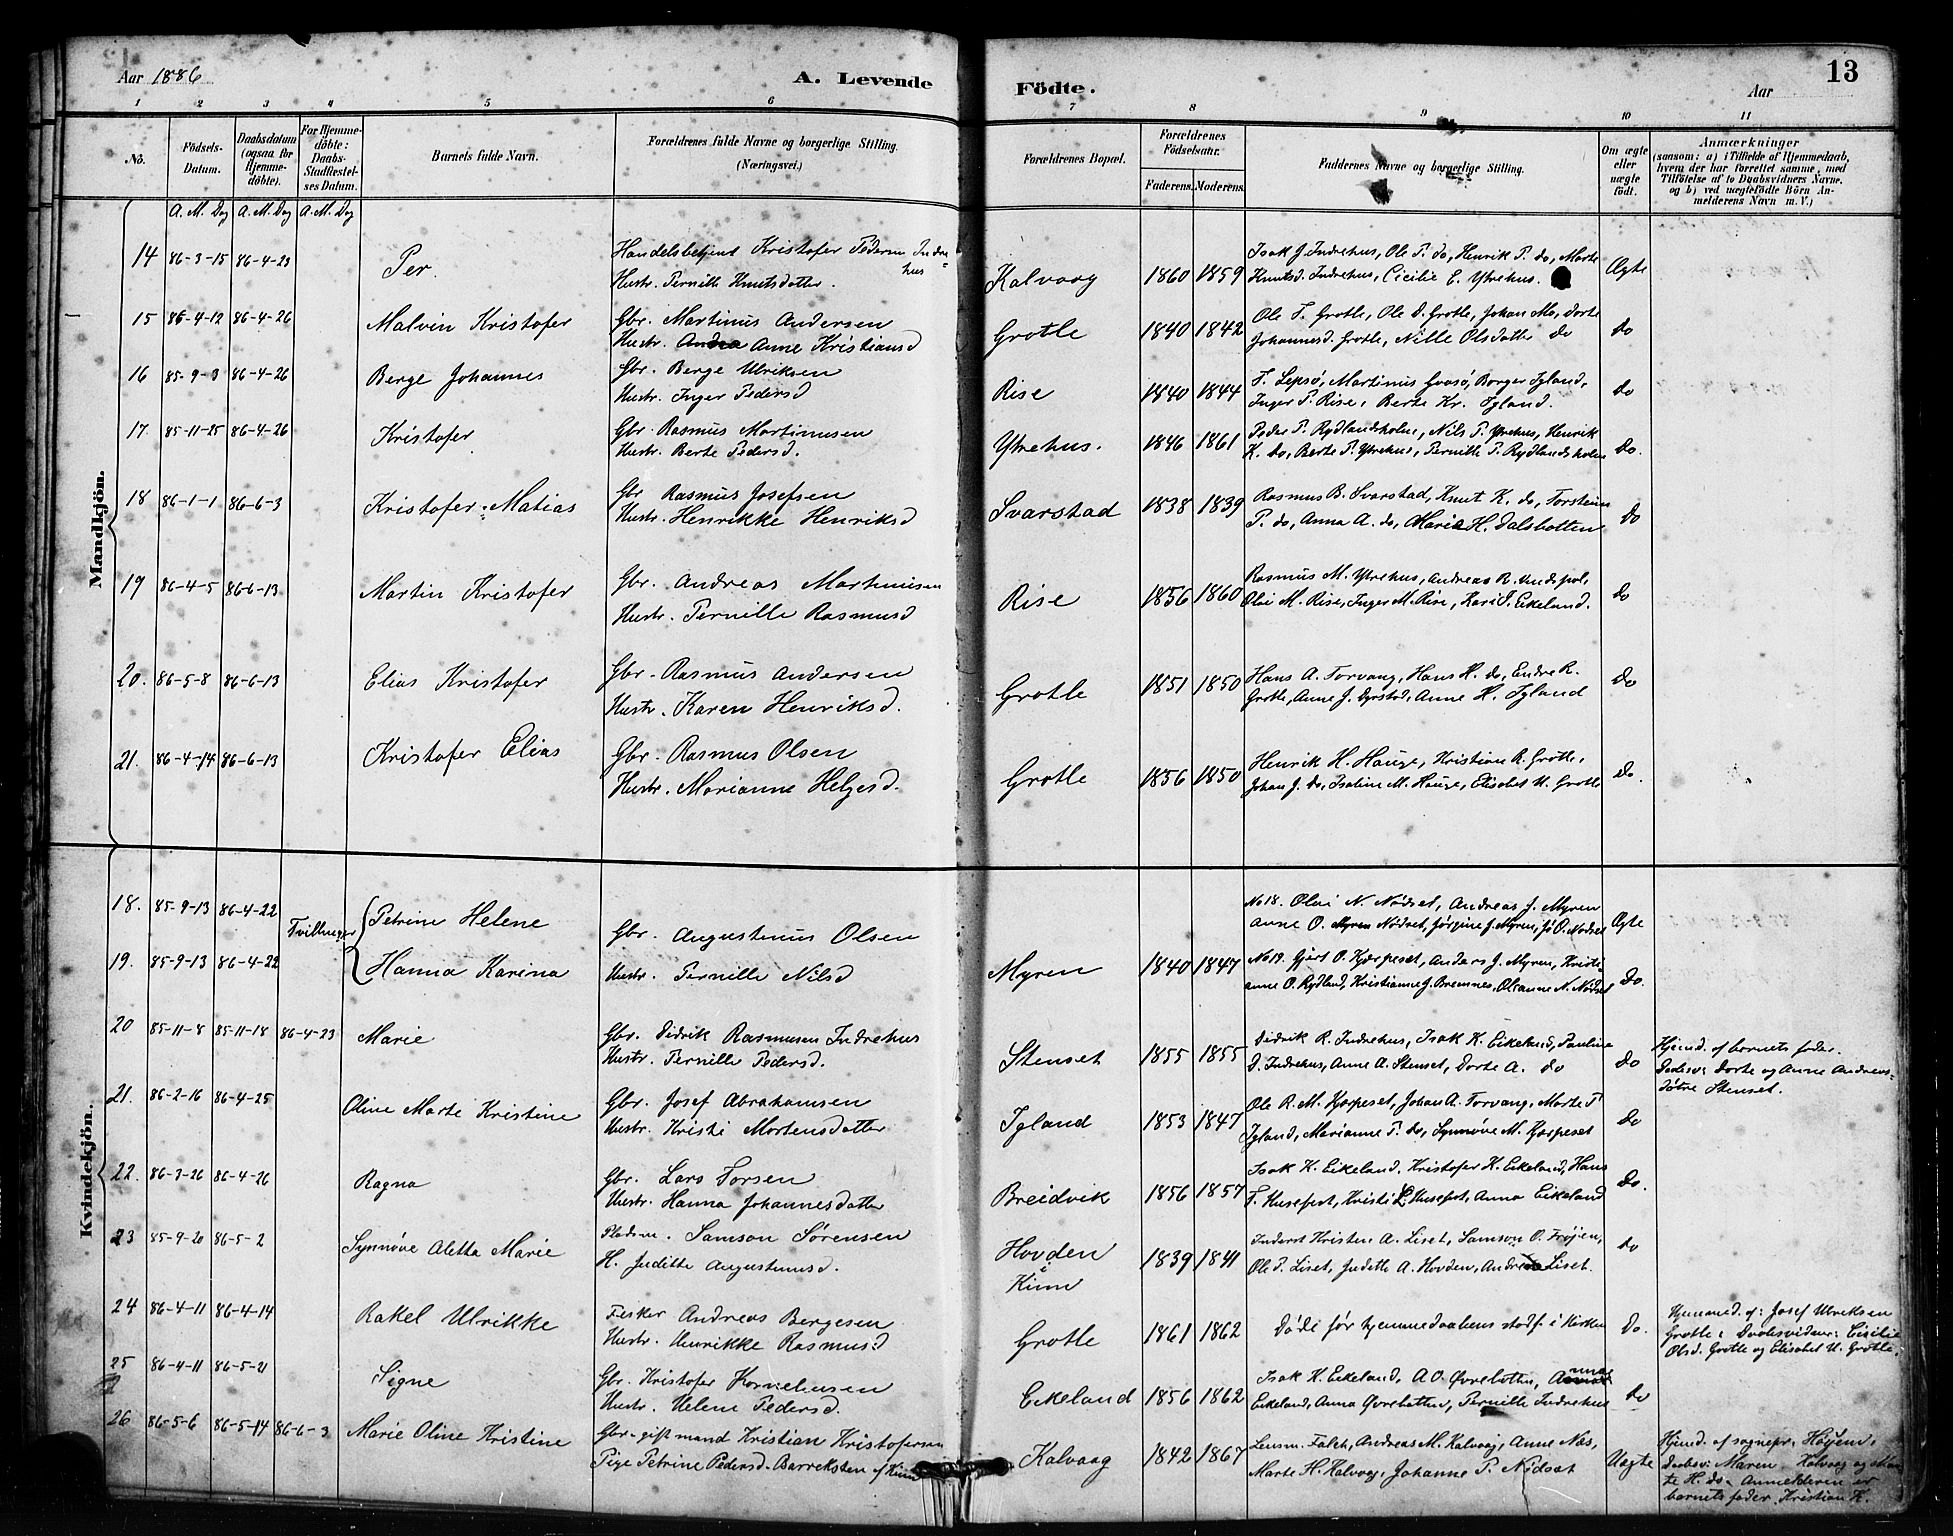 Aar 1886
A. Levende Födte.
Aar
13
1 2 3 4 5 6 7 8 9 10 11
No.
Födsels-Datum.
Daabsdatum (ogsaa for Hjemme-döbte).
For Hjemme-döbte: Daabs-Stadfæstel-ses Datum.
Barnets fulde Navn.
Forældrenes fulde Navne og borgerlige Stilling. (Næringsvei.)
Forældrenes Bopæl.
Forældrenes Födselsaar.
Faderens. Moderens.
Faddernes Navne og borgerlige Stilling.
Om ægte eller uægte födt.
Anmærkninger
(saasom: a) i Tilfælde af Hjemmedaab, hvem der har forrettet samme, med Tilföielse af to Daabsvidners Navne, og b) ved uægtefödte Börn An-melderens Navn m. V.)
A. M. Dag A. M. Dag A. M. Dag
Mandkjön.
14 86-3-15 86-4-23 Per. Handelsbetjent Kristofer Pedersen Indrehus
Hustr. Pernille Knutsdatter.
Kalvaag 1860 1859 Isak J. Indrehus, Ole P. do, Henrik P. do, Marte
Knutsd. Indrehus, Cicilie E. Ytrehus. Ægte
15 86-4-12 86-4-26 Malvin Kristofer Gbr. Martinus Andersen
Hustr. Anne Kristiansd
Grotle 1840 1842 Ole F. Grotle, Ole D. Grotle, Johan M. do, Dorte
Johannesd. Grotle, Nille Olsdatter do do
16 85-9-3 86-4-26 Berge Johannes Gbr. Berge Ulriksen
Hustr. Inger Pedersd
Rise 1840 1844 F. Lepsø, Martinus Gvasø, Borger Igland,
Inger P. Rise, Berte Kr. Igland. do
17. 85-11-25 86-4-26 Kristofer Gbr. Rasmus Martinusen
Hustr. Berte Pedersd.
Ytrehus. 1846 1861 Peder P. Rydlandsholm, Nils P. Ytrehus, Henrik
K. do, Berte P. Ytrehus, Pernille P. Rydlandsholm do.
18 86-1-1 86-6-3 Kristofer Matias Gbr Rasmus Josefsen
Hustr. Henrikke Henriksd
Svarstad 1838 1839 Rasmus B. Svarstad, Knut K. do, Torstein
P. do, Anna A. do, Marie H. Dalsbotten do
19 86-4-5 86-6-13 Martin Kristofer Gbr. Andreas Martinusen
Hustr. Pernille Rasmusd
Rise 1856 1860 Rasmus M. Ytrehus, Andreas R. Endspol,
Olai M. Rise, Inger M. Rise, Kari J. Eikeland. do
20. 86-5-8 86-6-13 Elias Kristofer Gbr. Rasmus Andersen
Hustr. Karen Henriksd.
Grotle 1851 1850 Hans A. Torvang, Hans H. do, Endre R.
Grotle, Anne J. Dyrstad, Anne H. Igland do
21. 86-4-14 86-6-13 Kristofer Elias Gbr. Rasmus Olsen
Hustr. Marianne Helgesd.
Grotle 1856 1850 Henrik H. Hauge, Kristian R. Grotle,
Johan J. do, Isaline M. Hauge, Elisabet U. Grotle do.
Kvindekjön.
18. 85-9-13 86-4-22 Tvillinger Petrine Helene Gbr. Augustinus Olsen
No 18. Olai N. Nødset, Andreas J. Myren
Anne O. Nødset, Jørgine J. Myren, Jo O. Nødset Ægte
19. 85-9-13 86-4-22 Hanna Karina Hustr. Pernille Nilsd
Myren 1840 1847 No 19. Gjert O. Kjerpeset, Anders J. Myren, Kristi-
anne O. Rydland, Kristianne J. Bremnes, Oleanne N. Nødset do.
20 85-11-8 85-11-18 86-4-23 Marie Gbr. Didrik Rasmusen Indrehus
Hustr. Pernille Pedersd.
Stenset 1855 1855 Didrik R. Indrehus, Isak K. Eikeland, Pauline
D. Indrehus, Anne A. Stenset, Dorte A. do do
Hjemd. af barnets fader.
Daabsv: Dorte og Anne Andreas-
døtre Stenset.
21. 86-2-16 86-4-25 Oline Marte Kristine Gbr. Josef Abrahamsen
Hustr. Kristi Mortensdatter
Igland 1853 1847 Ole R. M. Kjerpeset, Johan A. Torvang, Marte T
Igland, Marianne P. do, Synnøve M. Kjerpeset do
22. 86-3-26 86-4-26 Ragna Gbr. Lars Torsen
Hustr. Hanna Johannesdatter
Breidvik 1856 1857 Isak K. Eikeland, Kristofer K. Eikeland, Hans
T. Husefest, Kristi L. Husefest, Anna Eikeland do.
23 85-9-20 86-5-2 Synnøve Aletta Marie Pladsm. Samson Sørensen
H. Juditte Augustinusd.
Hovden i Kinn 1839 1841 Inderst Kristen A. Liset, Samson O. Frøjen,
Ole P. Liset, Judette A. Hovden, Andrea Liset. do
24 86-4-11 86-4-14 Rakel Ulrikke Fisker Andreas Bergesen
Hustr. Henrikke Rasmusd
Grotle 1861 1862 Døde før hjemmedaabens stadf. i Kirken do.
Hjemmed. af: Josef Ulriksen
Grotle. Daabsvidner: Cicilie
Olsd. Grotle og Elisabet U. Grotle.
25 86-4-11 86-5-21 Signe Gbr. Kristofer Korneliusen
Hustr. Helene Pedersd.
Eikeland 1856 1862 Isak H. Eikeland, A O. Øvrebotten, Anna
Eikeland, Anna Øvrebotten, Pernille Indrehus do
26 86-5-6 86-5-14 86-6-3 Marie Oline Kristine Gbr. gift mand Kristian Kristofersen
Pige Petrine Pedersd. Barreksten af Kinn
Kalvaag 1842 1867 Lensm. Falch, Andreas M. Kalvaag, Anne Næs,
Marte H. Kalvaag, Johanne P. Nødset Uægte
Hjemd. af sognepr. Høyem.
Daabsv: Maren Kalvaag og Mar-
te H. do. Anmelderen er
barnets fader, Kristian K.